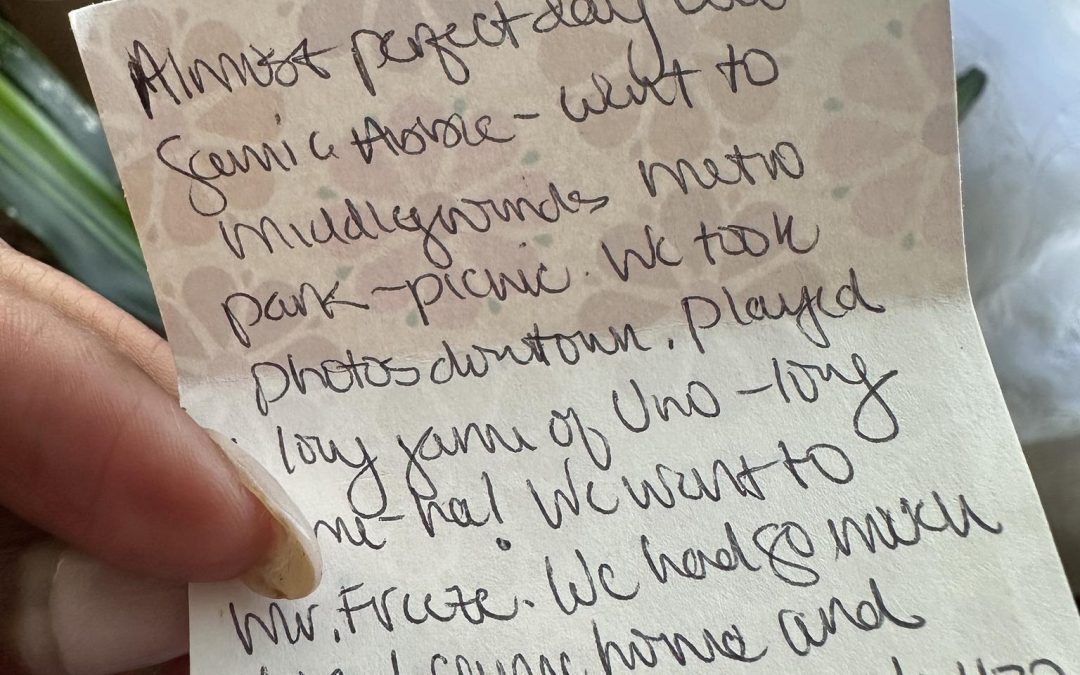 Almost perfect day
Scenic - went to
middlegrounds metro
park - picnic. We took
photos downtown. Played
long game of Uno - long
me - ha! We went to
Mr. Freeze. We had so much
home and